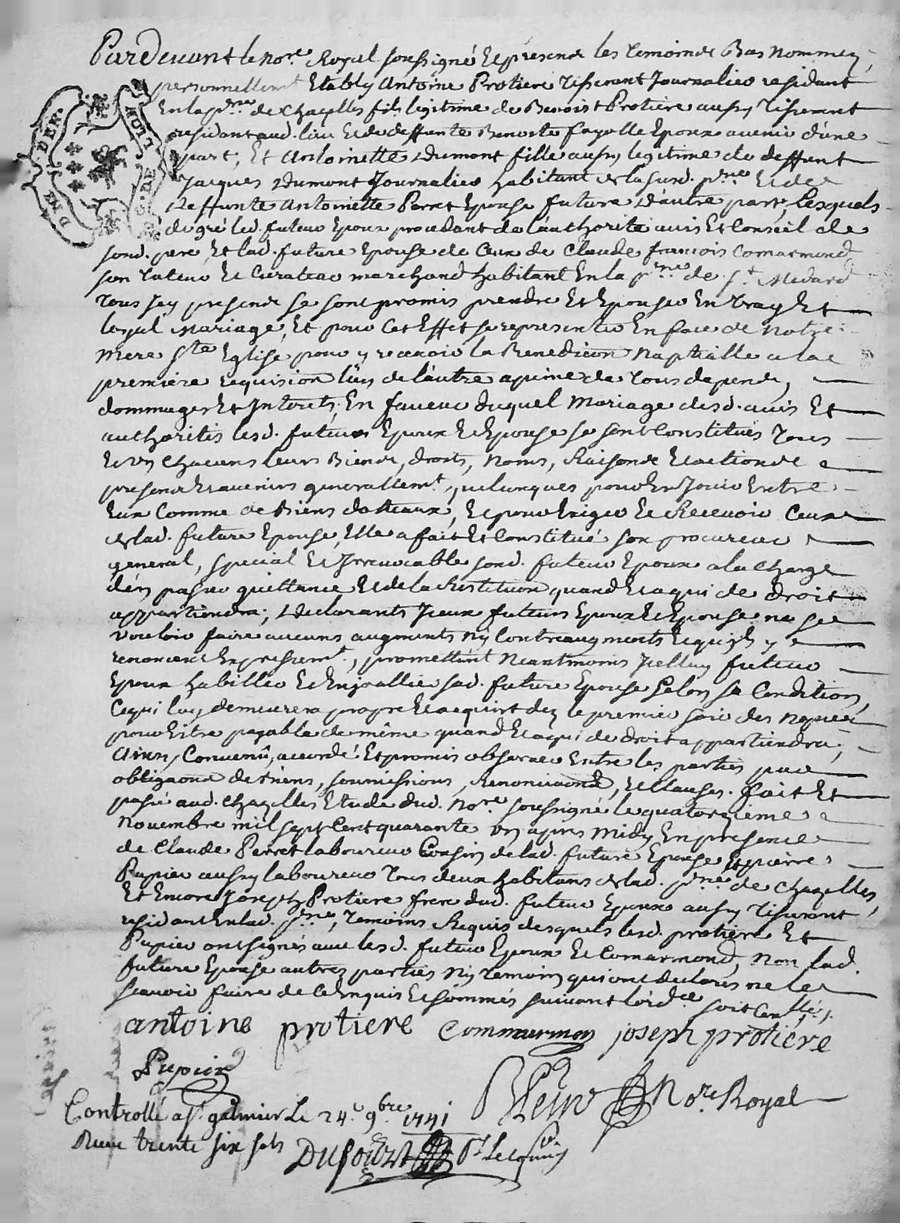 Pardevant le nore Royal soussigné Et présende les temoinde Bas Nommez,
personnellemt Etably Antoine Protiere Tisserant Journalier residant
En la pnre de Chazelles fils legitime de Benoist Protiere aussy Tisserant
residant aud. lieu Et de deffunte Benoste fayolle Epoux avenir d'une
part, Et Antoinette Dumont fille aussy legitime de deffunt
Jacques Dumont Journalier habitant de la susd. pnre Et de
deffunte Antoinette Perret Epouse future d'autre part, lesquels
de gré led. futeur Epoux procedant de l'authorité avis Et Conseil de
sond. pere, Et lad. future Epouse de Ceux de Claude francois Comarmond
son Tuteur Et Curateur marchand habitant En la pnre de St Medard
tous Icy presende se sont promis prendre Et Epouser En vray Et
loyal Mariage, Et pour Cet Effet se representer En face de Notre
Mere Ste Eglise pour y recevoir la Benediction Nuptialle a la
premiere requision l'un de l'autre a peine de Tous depende,
dommages Et Interets, En faveur duquel Mariage desd. avis Et
authorités lesd. futeurs Epoux Et Epouse se sont Constitués Tous
Et un Chacuns leurs Biende, droits, Noms, Raisonde Et actionde
presende Et avenirs generallemt quelunques pour En Jouir Entre
Eux Comme de Biens dotteaux, Et pour Exiger Et Recevoir Ceux
de lad. future Epouse, Elle a fait Et Constitué son procureur
general, special Et Irrevocable sond. futeur Epoux a la Charge
d'en passer quittance Et de la Restitution quand Et a qui de droit
appartiendra; Declarants Iceux futeurs Epoux Et Epouse ne se
vouloir faire aucuns augments Ny Contreaugments Et a quoy ils y
renoncent Expressemt, promettant Neantmoins Icelluy futeur
Epoux habiller Et Enjoaller sad. future Epouse selon sa Condition,
Ce qui luy demeurera propre Et acquist dez le premier soir des Nopces
pour Estre payable de même quand Et a qui de droit appartiendra,
Ainsy Convenu, accordé Et promis observer Entre les parties par
obligaonde de biens, soumissions, Renonciaonde, Et Clauses. fait Et
passé aud. Chazelles Etude dud. Nore soussigné le quatorzieme
Novembre mil sept Cent quarante un apres midy En presence
de Claude Perret laboureur Cousin de lad. future Epouse Et pierre
Pupier aussy laboureur Tous deux habitans de lad. pnre de Chazelles,
Et Encore Joseph Protiere frere dud. futeur Epoux aussy Tisserant
residant En lad. pnre, Temoins Requis desquels lesd. protiere Et
Pupier ont signés avec lesd. futeur Epoux Et Comarmond, Non lad.
future Epouse autres parties Ny Temoin qui ont declarés ne le
sçavoir faire de Ce Enquis Et sommés suivant l'ordce soit Conllé,.
antoine protiere Commarmon joseph protiere
Pupier
Nore Royal
Controllé a St galmier Le 24e 9bre 1741
Reçu trente six sols